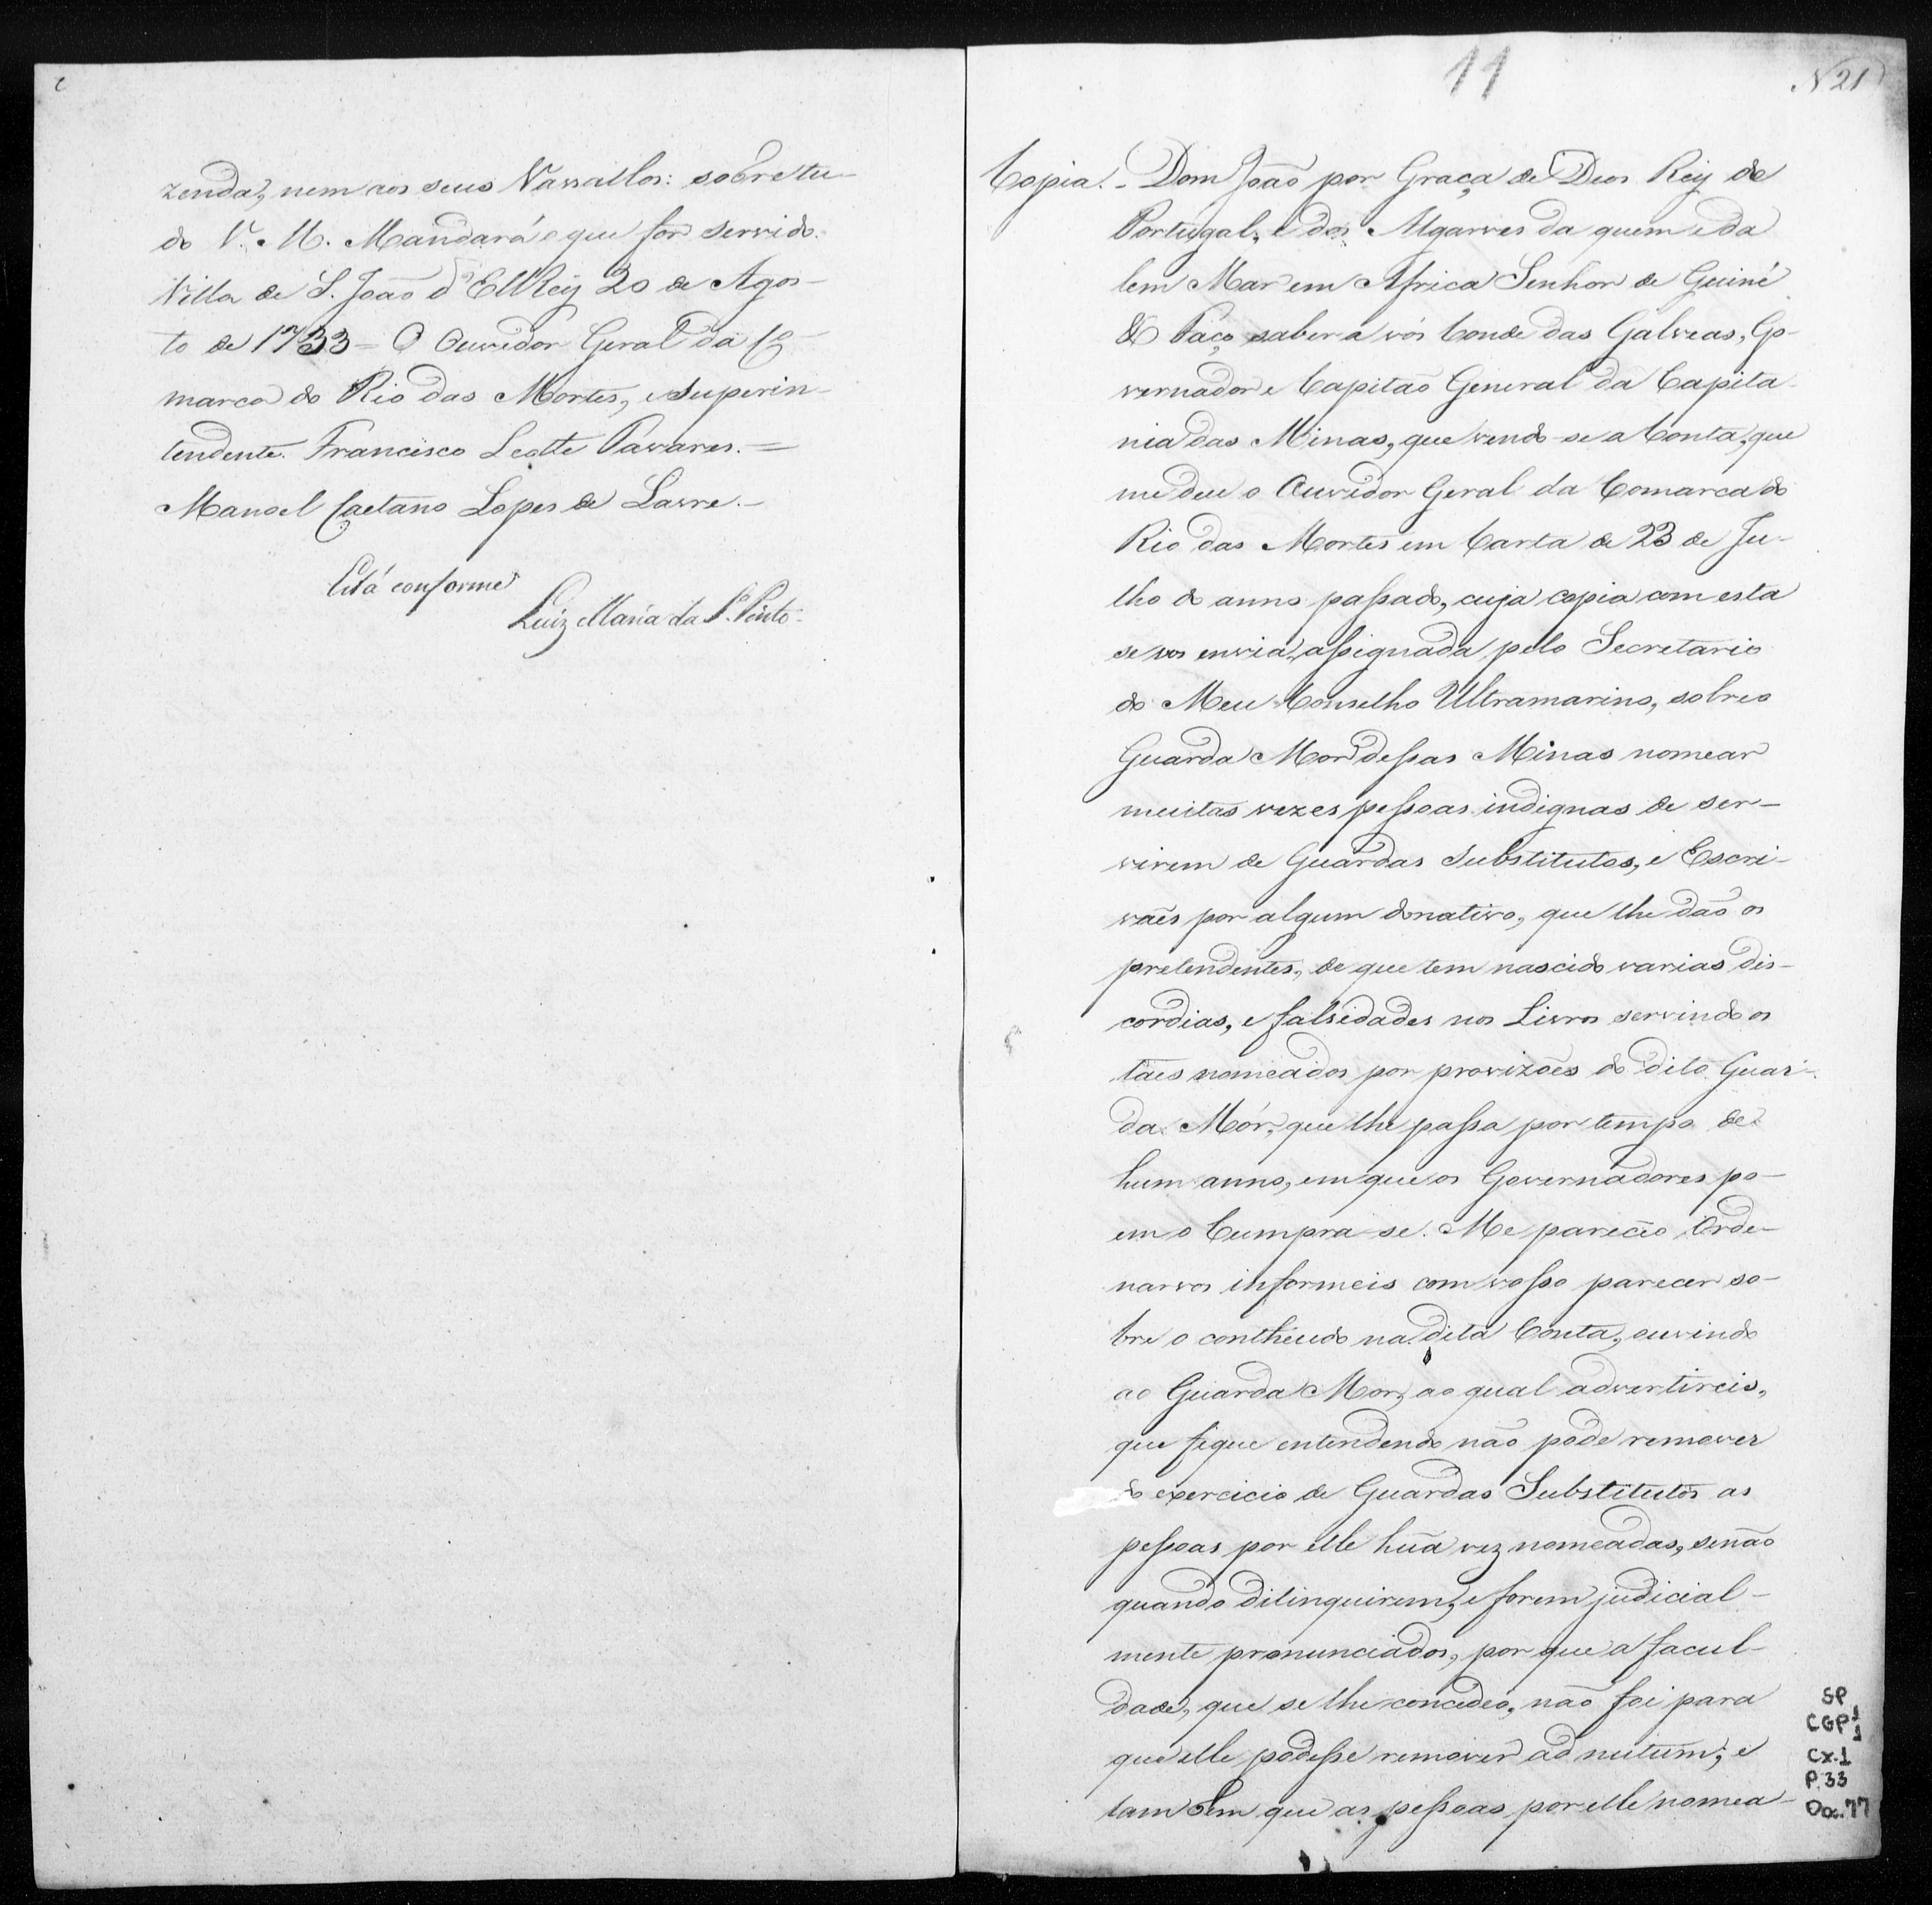 zenda, nem aos seus Vassallos: sobretu-
do V. M. Mandará o que for servido.
Villa de S. João d'ElRey 20 de Agos-
to de 1733 = O Ouvidor Geral da Co-
marca do Rio das Mortes, e Superin-
tendente. Francisco Leotte Tavares. =
Manoel Caetano Lopes de Lavre. -
Está conforme
Luiz Maria da S.ª Pinto.
11
N 21
Copia. - Dom João por Graça de Deos Rey de
Portugal, e dos Algarves da quem e da
lem Mar em Africa Senhor de Guiné
& Faço saber a vós Conde das Galveas, Go-
vernador e Capitão General da Capita-
nia das Minas, que vendo-se a Conta, que
me deu o Ouvidor Geral da Comarca do
Rio das Mortes em Carta de 23 de Ju-
lho do anno paſsado, cuja copia com esta
se vos envia, aſsignada pelo Secretario
do Meu Conselho Ultramarino, sobre o
Guarda Mor deſsas Minas nomear
muitas vezes peſsoas indignas de ser-
virem de Guardas Substitutos, e Escri-
vães por algum donativo, que lhe dão os
pretendentes, de que tem nascido varias dis-
cordias, e falsidades nos Livros servindo os
táes nomeados por provizões do dito Guar-
da Mór, que lhe paſsa por tempo de
hum anno, em que os Governadores po-
em o Cumpra-se. Me pareceo Orde-
narvos informeis com voſso parecer so-
bre o contheudo na dita Conta, ouvindo
ao Guarda Mor, ao qual advertireis,
que fique entendendo não pode remover
do exercicio de Guardas Substitutos as
peſsoas por elle hũa vez nomeadas, senão
quando dilinquirem, e forem judicial-
mente pronunciados, por que a facul-
dade, que se lhe concedeo, não foi para
que elle podeſse remover ad nutum; e
tam bem que as peſsoas por elle nomea-
SP
CGP¹
1
Cx.1
P.33
Doc.77